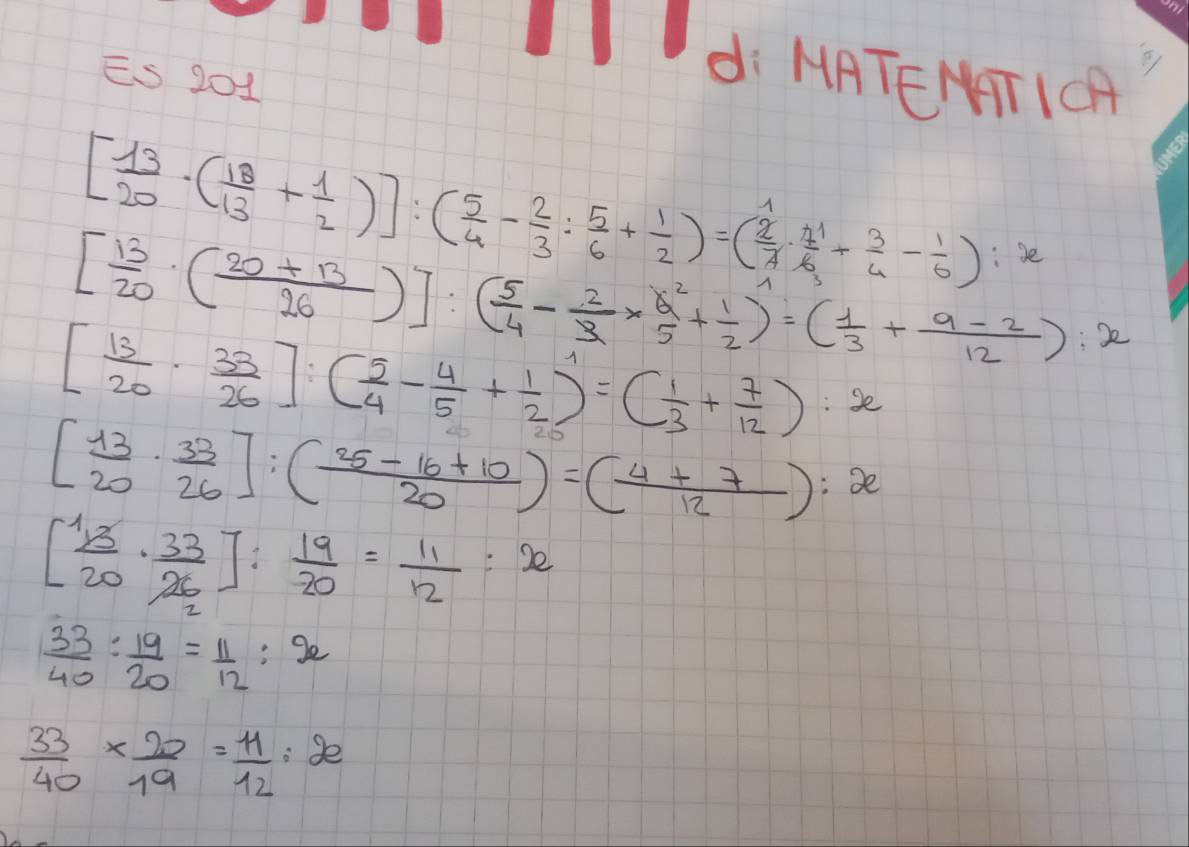 di MATEMATICA
ES 201
[13/20 · (18/13 + 1/2)] : (5/4 - 2/3 : 5/6 + 1/2) = (2/7 · 7/6 + 3/4 - 1/6) : x
[13/20 · (20 + 13/26)] : (5/4 - 2/3 × 6/5 + 1/2) = (1/3 + 9 - 2/12) : x
[13/20 · 33/26] : (5/4 - 4/5 + 1/2) = (1/3 + 7/12) : x
[13/20 · 33/26] : (25 - 16 + 10/20) = (4 + 7/12) : x
[13/20 · 33/26] : 19/20 = 11/12 : x
33/40 : 19/20 = 11/12 : x
33/40 × 20/19 = 11/12 : x
NUMERI